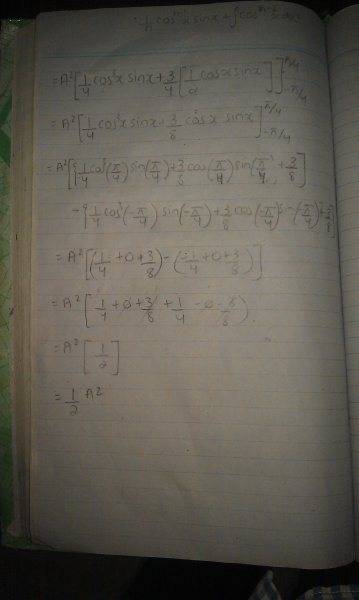 = A²[1/4 cos³x sinx + 3/4 [1/2 cosx sinx]] π/4 -π/4
= A²[1/4 cos³x sinx + 3/8 cosx sinx] π/4 -π/4
= A²[{1/4 cos³(π/4) sin(π/4) + 3/8 cos(π/4) sin(π/4) + 3/8}
- {1/4 cos³(-π/4) sin(-π/4) + 3/8 cos(-π/4) (-π/4) + 3/8}]
= A²[(1/4 + 0 + 3/8) - (-1/4 + 0 + 3/8)]
= A²[1/4 + 0 + 3/8 + 1/4 - 0 - 3/8]
= A²[1/2]
= 1/2 A²